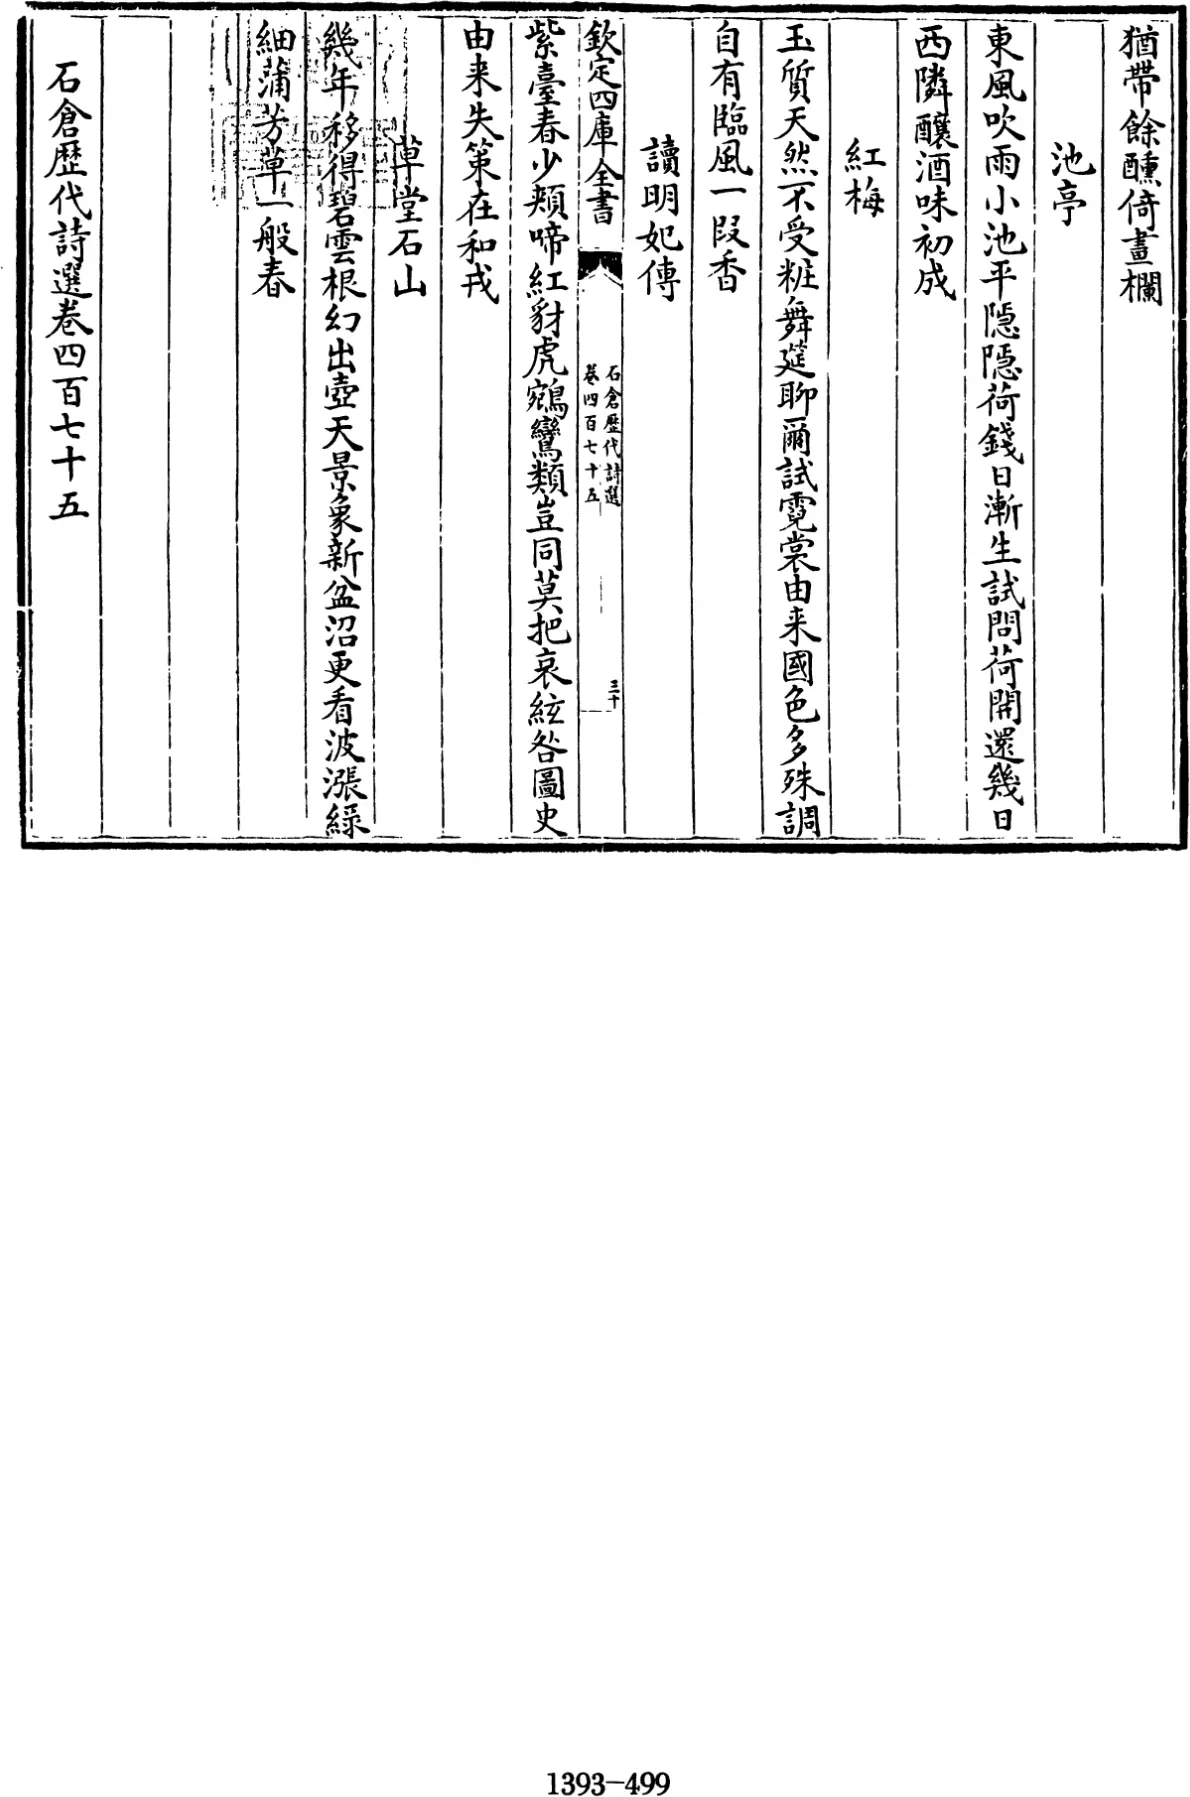 猶帶餘醺倚畫欄
池亭
東風吹雨小池平隠隠荷錢日漸生試問荷開還幾日
西隣釀酒味初成
紅梅
玉質天然不受粧舞筵聊爾試霓裳由来國色多殊調
自有臨風一段香
讀明妃傳
欽定四庫全書
石倉歷代詩選
卷四百七十五
三十
紫臺春少頰啼紅豺虎鵷鸞類豈同莫把哀絃咎圖史
由来失策在和戎
草堂石山
幾年移得碧雲根幻出壺天景象新盆沼更看波漲綠
細蒲芳草一般春
石倉歷代詩選卷四百七十五
1393-499